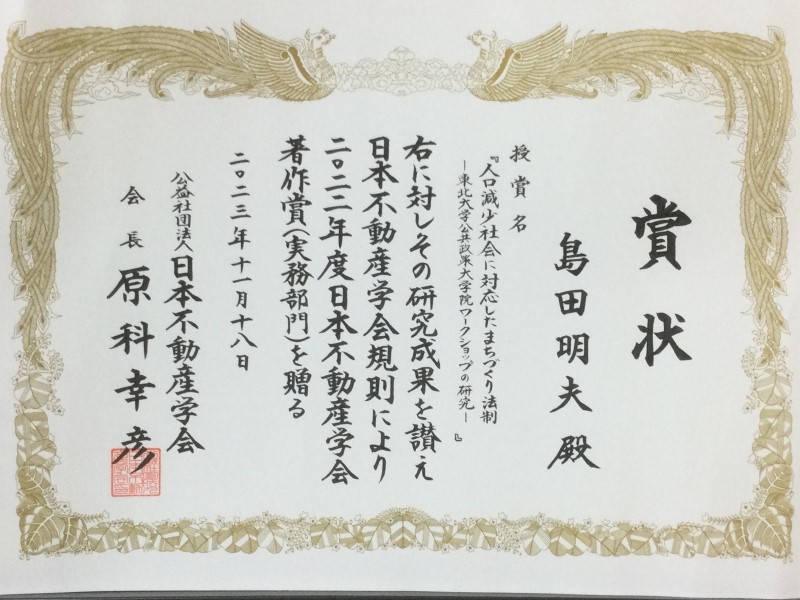 賞状
島田明夫殿
授賞名
『人口減少社会に対応したまちづくり法制
－東北大学公共政策大学院ワークショップの研究－』
右に対しその研究成果を讃え
日本不動産学会規則により
二〇二二年度日本不動産学会
著作賞(実務部門)を贈る
二〇二三年十一月十八日
公益社団法人日本不動産学会
会長原科幸彦